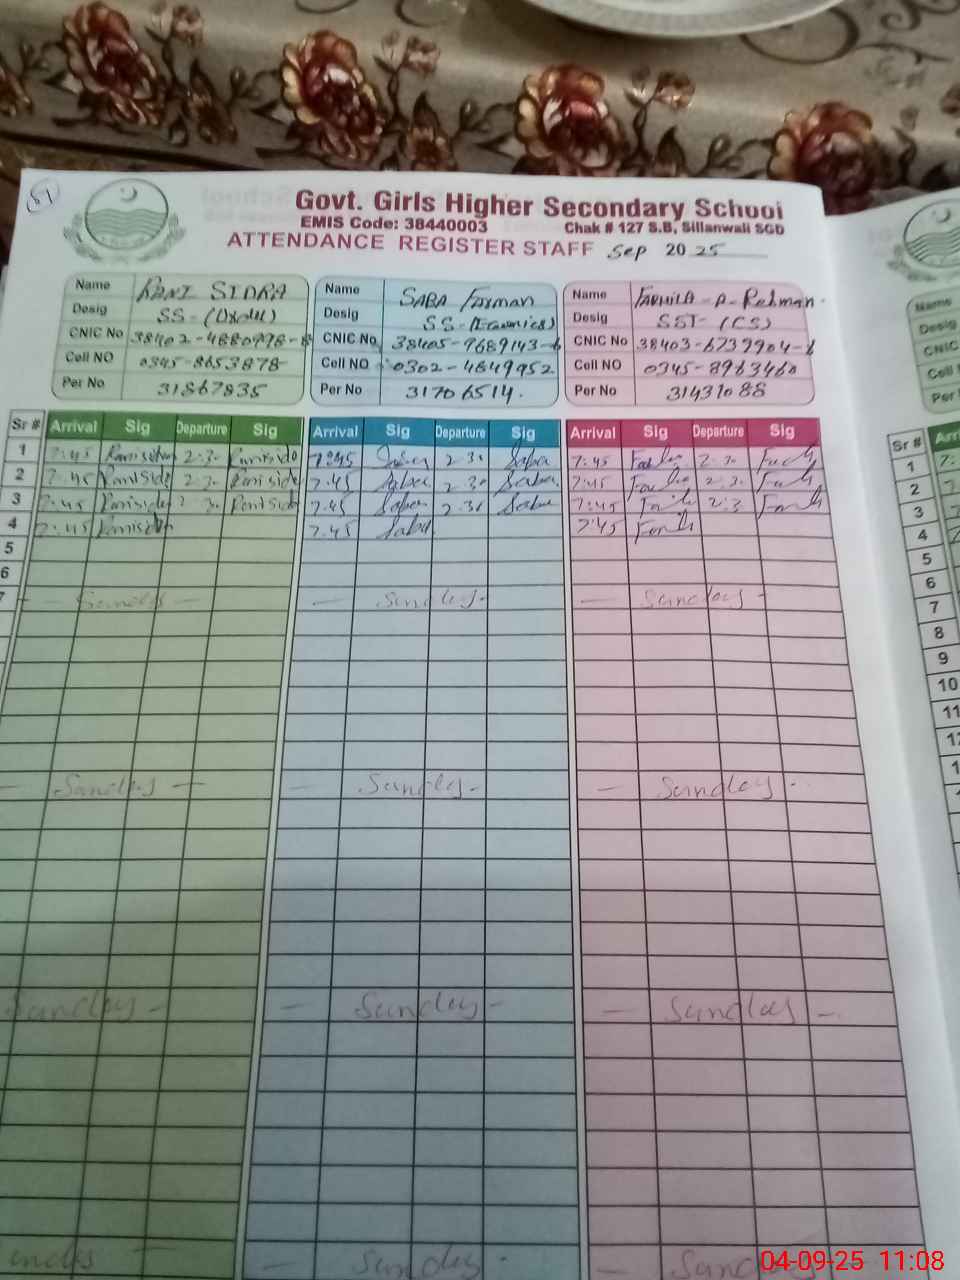 51
Govt. Girls Higher Secondary School
EMIS Code: 38440003 Chak # 127 S.B, Sillanwali SGD
ATTENDANCE REGISTER STAFF Sep 2025
Name RANI SIDRA
Desig SS-(Urdu)
CNIC No 38402-4880998-8
Cell NO 0345-8653878
Per No 31867835
Name SABA Farman
Desig SS-(Economics)
CNIC No 38405-9689143-6
Cell NO 0302-4849952
Per No 31706514.
Name FARHILA-A-Rehman.
Desig SST- (CS)
CNIC No 38403-6739904-6
Cell NO 0345-8983460
Per No 31431088
Sr # Arrival Sig Departure Sig Arrival Sig Departure Sig Arrival Sig Departure Sig
1 7:45 2:30 7:45 Saba 2:30 Saba 7:45 2:30
2 7:45 RaniSidra 2:30 RaniSidra 7:45 Saba 2:30 Saba 7:45 2:30
3 7:45 RaniSidra 2:30 RaniSidra 7:45 Saba 2:30 Saba 7:45 2:3
4 7:45 RaniSidra 7:45 Saba 7:45
5
6
7 — Sunday — — Sunday - — Sunday -
— Sunday — — Sunday - — Sunday -
Sunday - — Sunday - — Sunday -
Sunday — — Sunday - — Sunday
Name
Desig
CNIC
Cell
Per
Sr # Arri
1
2
3
4
5
6
7
8
9
10
11
04-09-25 11:08